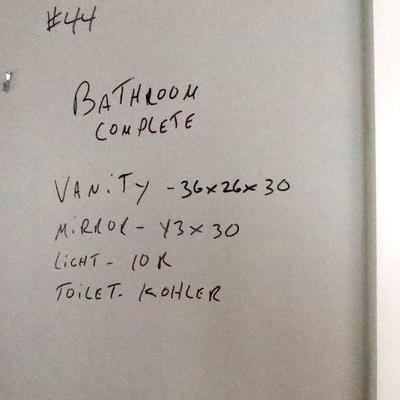 #44
BATHROOM
COMPLETE
VANiTY - 36x26x30
MiRROR - 43x30
LiGHT - 10R
TOiLET - KOHLER